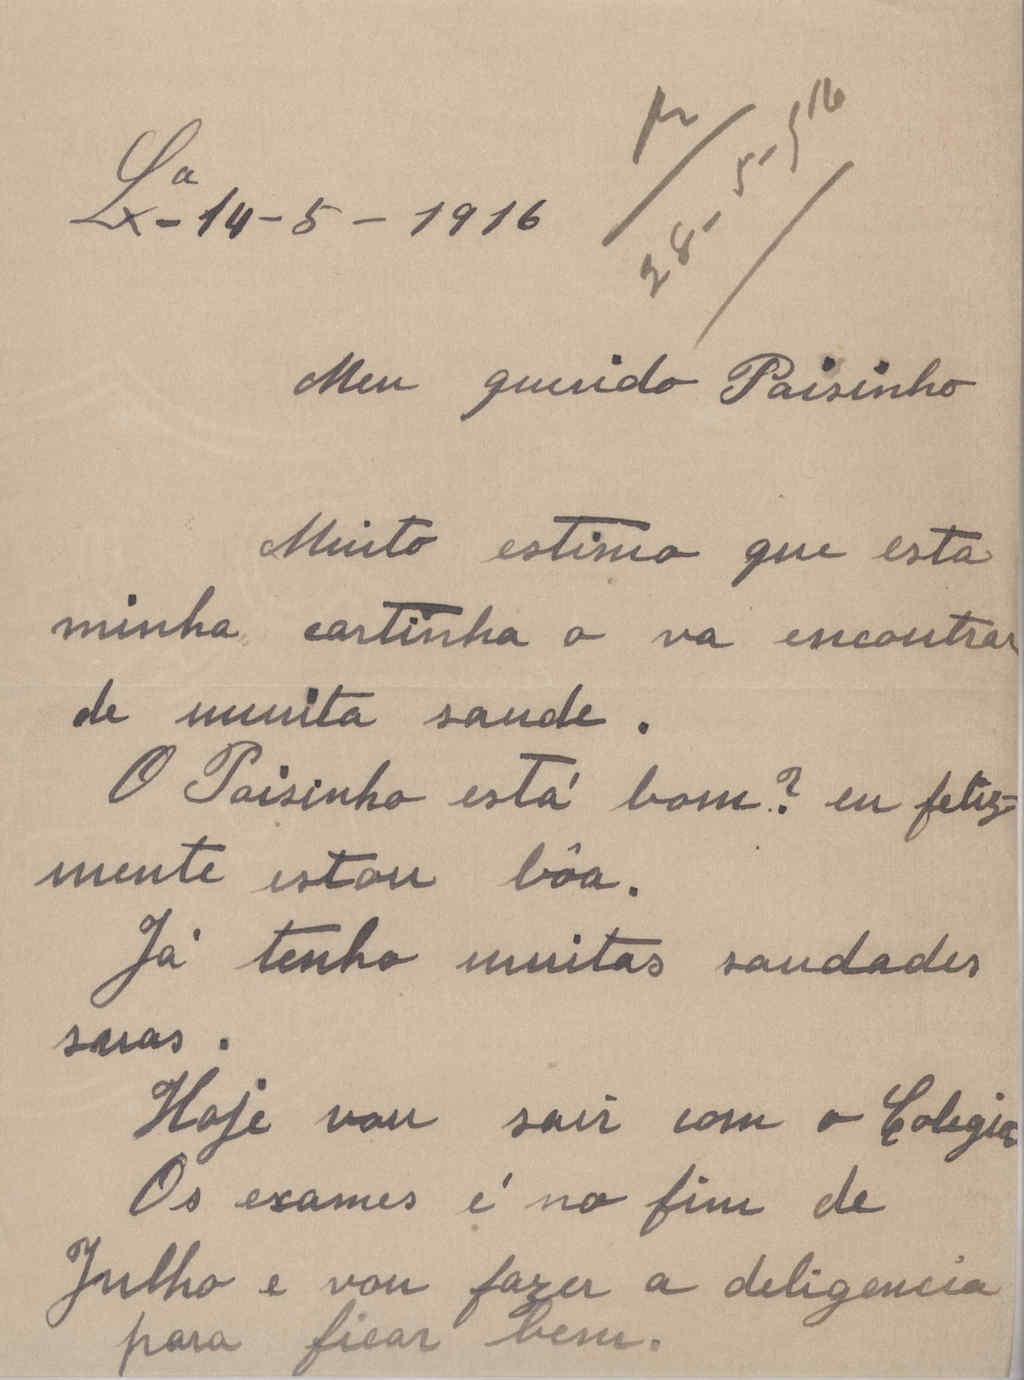 Lxª-14-5-1916
Meu querido Paisinho
Muito estimo que esta
minha cartinha o va encontrar
de muita saude.
O Paisinho está bom? eu feliz-
mente estou bôa.
Já tenho muitas saudades
suas.
Hoje vou sair com o Colegio
Os exames é no fim de
Julho e vou fazer a deligencia
para ficar bem.